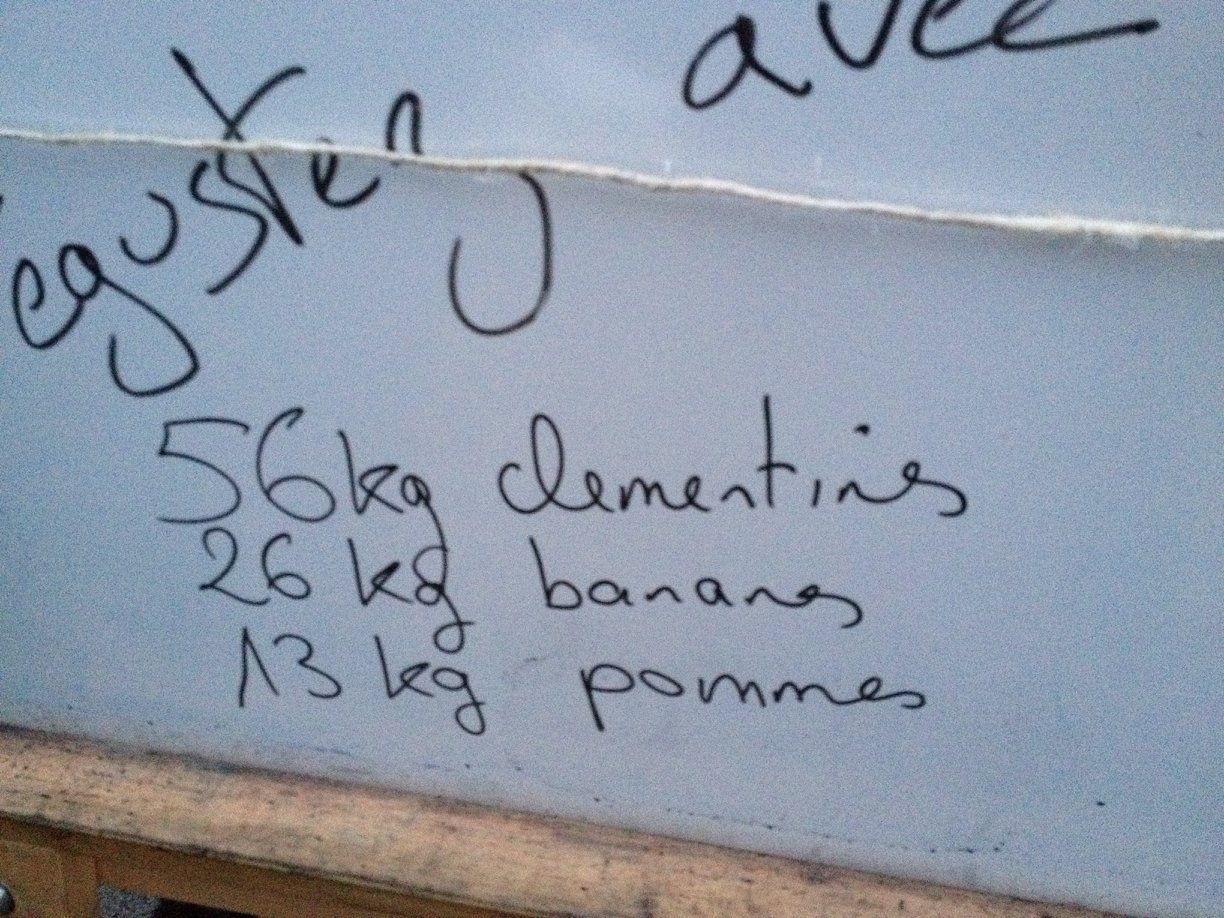 avec
egustez
56kg clementines
26 kg bananes
13 kg pommes